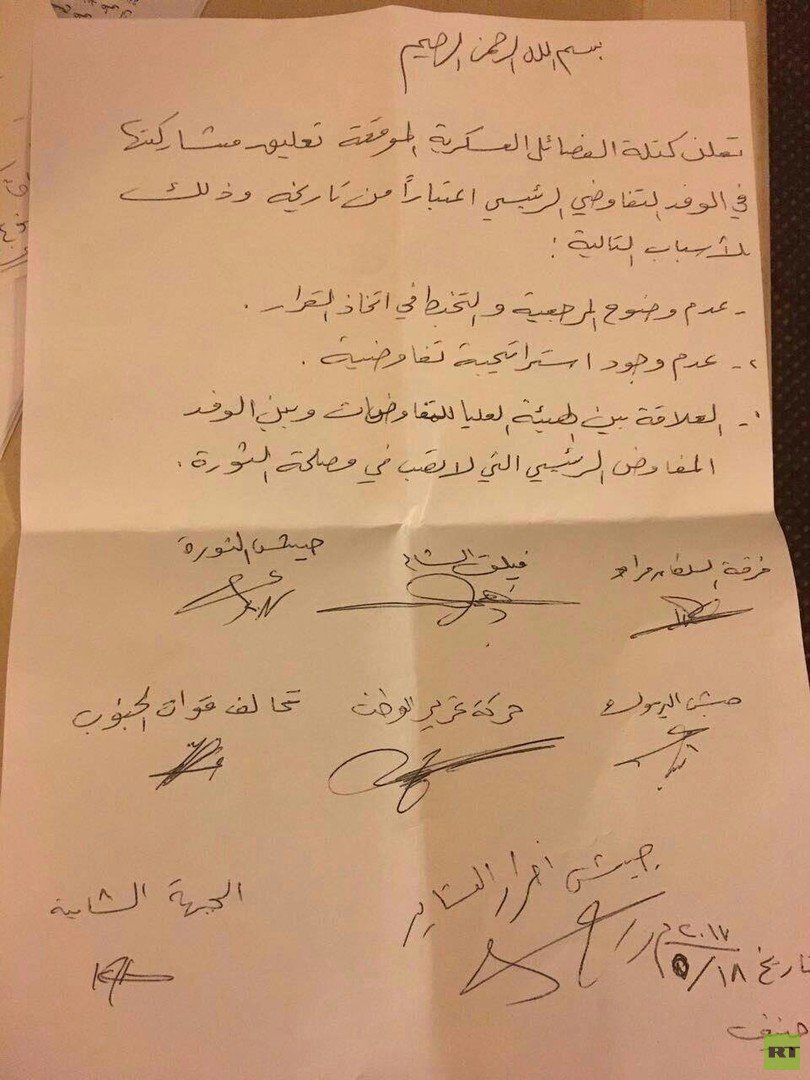 بسم الله الرحمن الرحيم
تعلن كتلة الفصائل العسكرية الموقعة تعليق مشاركتها
في الوفد التفاوضي الرئيسي اعتباراً من تاريخه وذلك
للأسباب التالية:
- عدم وضوح المرجعية والتخبط في اتخاذ القرار.
٢- عدم وجود استراتيجية تفاوضية.
- العلاقة بين الهيئة العليا للمفاوضات وبين الوفد
المفاوض الرئيسي التي لا تصب في مصلحة الثورة.
فرقة السلطان مراد فيلق الشام جيش الثورة
جيش اليرموك حركة تحرير الوطن تحالف قوات الجنوب
جيش أحرار العشاير الجبهة الشامية
تاريخ ١٨/٥/٢٠١٧ م
جنيف
RT